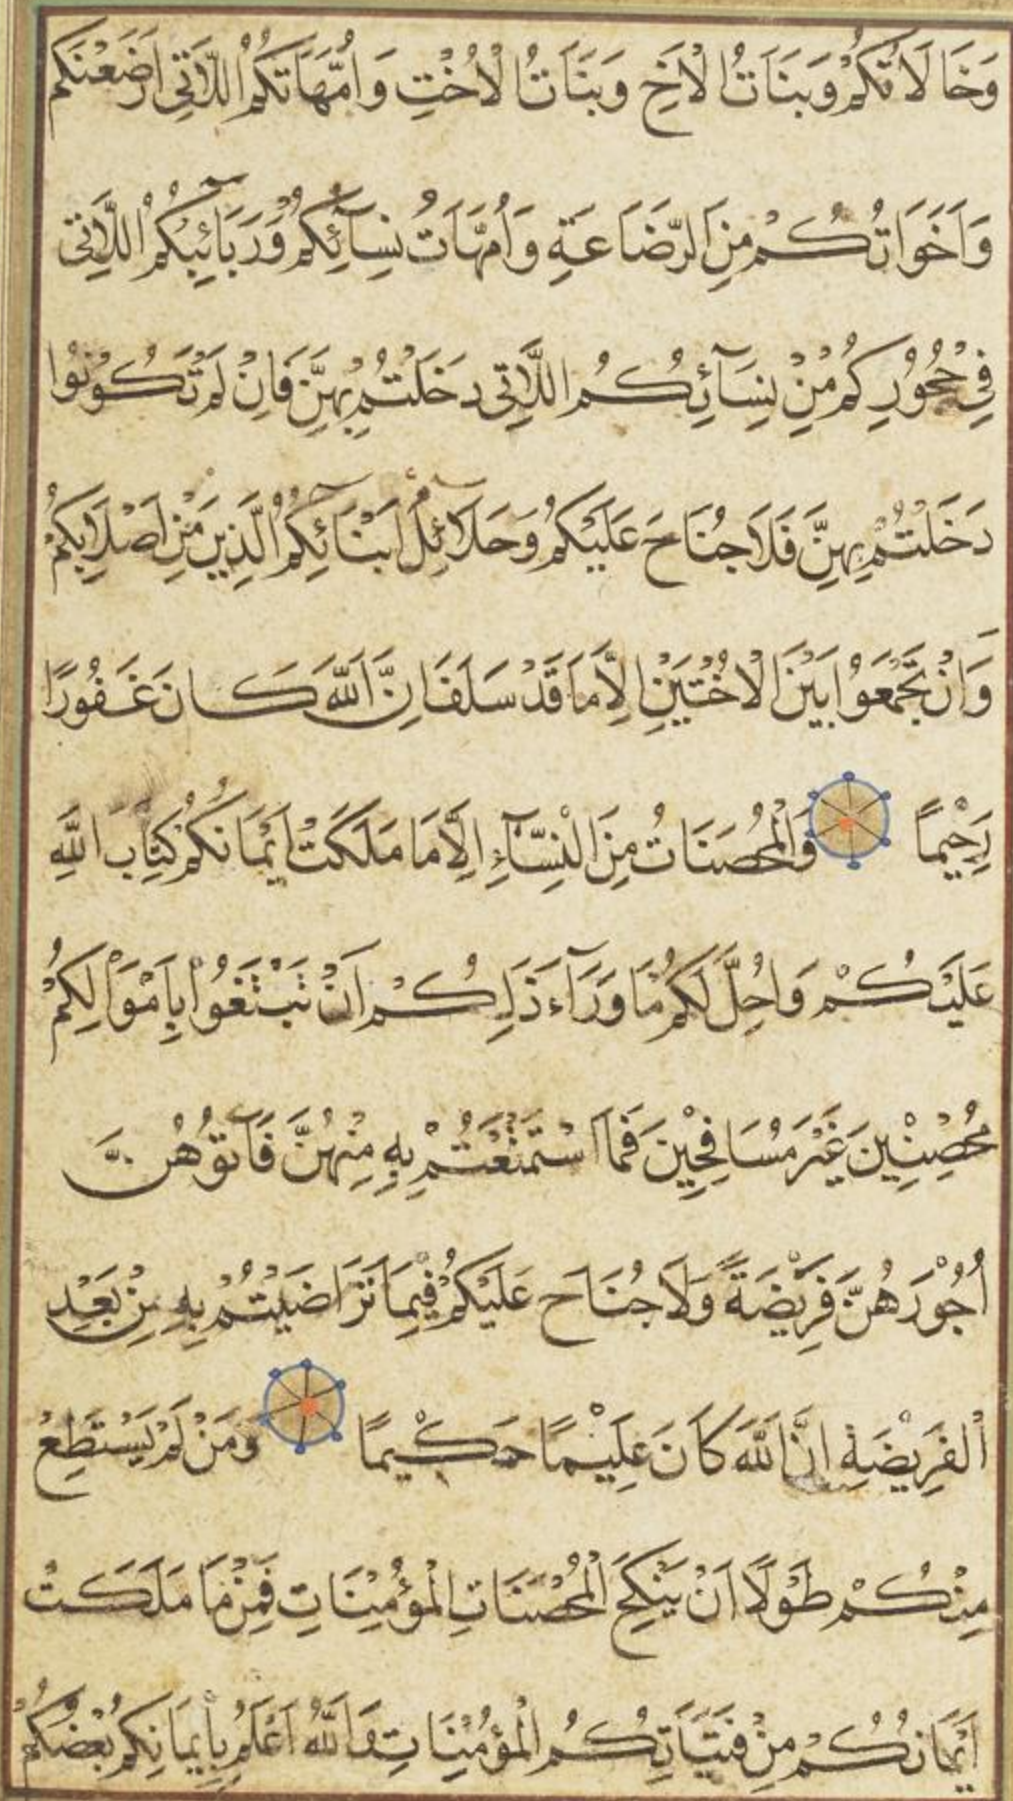 وَخَالَاتُكُمْ وَبَنَاتُ الْاَخِ وَبَنَاتُ الْاُخْتِ وَاُمَّهَاتُكُمُ اللَّاتِى اَرْضَعْنَكُمْ
وَاَخَوَاتُكُمْ مِنَ الرَّضَاعَةِ وَاُمَّهَاتُ نِسَآئِكُمْ وَرَبَآئِبُكُمُ اللَّاتِى
فِى حُجُورِكُمْ مِنْ نِسَآئِكُمُ اللَّاتِى دَخَلْتُمْ بِهِنَّ فَاِنْ لَمْ تَكُونُوا
دَخَلْتُمْ بِهِنَّ فَلَا جُنَاحَ عَلَيْكُمْ وَحَلَآئِلُ اَبْنَآئِكُمُ الَّذِينَ مِنْ اَصْلَابِكُمْ
وَاَنْ تَجْمَعُوا بَيْنَ الْاُخْتَيْنِ اِلَّا مَا قَدْ سَلَفَ اِنَّ اللَّهَ كَانَ غَفُورًا
رَحِيمًا وَالْمُحْصَنَاتُ مِنَ النِّسَآءِ اِلَّا مَا مَلَكَتْ اَيْمَانُكُمْ كِتَابَ اللَّهِ
عَلَيْكُمْ وَاُحِلَّ لَكُمْ مَا وَرَآءَ ذَلِكُمْ اَنْ تَبْتَغُوا بِاَمْوَالِكُمْ
مُحْصِنِينَ غَيْرَ مُسَافِحِينَ فَمَا اسْتَمْتَعْتُمْ بِهِ مِنْهُنَّ فَآتُوهُنَّ
اُجُورَهُنَّ فَرِيضَةً وَلَا جُنَاحَ عَلَيْكُمْ فِيمَا تَرَاضَيْتُمْ بِهِ مِنْ بَعْدِ
الْفَرِيضَةِ اِنَّ اللَّهَ كَانَ عَلِيمًا حَكِيمًا وَمَنْ لَمْ يَسْتَطِعْ
مِنْكُمْ طَوْلًا اَنْ يَنْكِحَ الْمُحْصَنَاتِ الْمُؤْمِنَاتِ فَمِنْ مَا مَلَكَتْ
اَيْمَانُكُمْ مِنْ فَتَيَاتِكُمُ الْمُؤْمِنَاتِ وَاللَّهُ اَعْلَمُ بِاِيمَانِكُمْ بَعْضُكُمْ